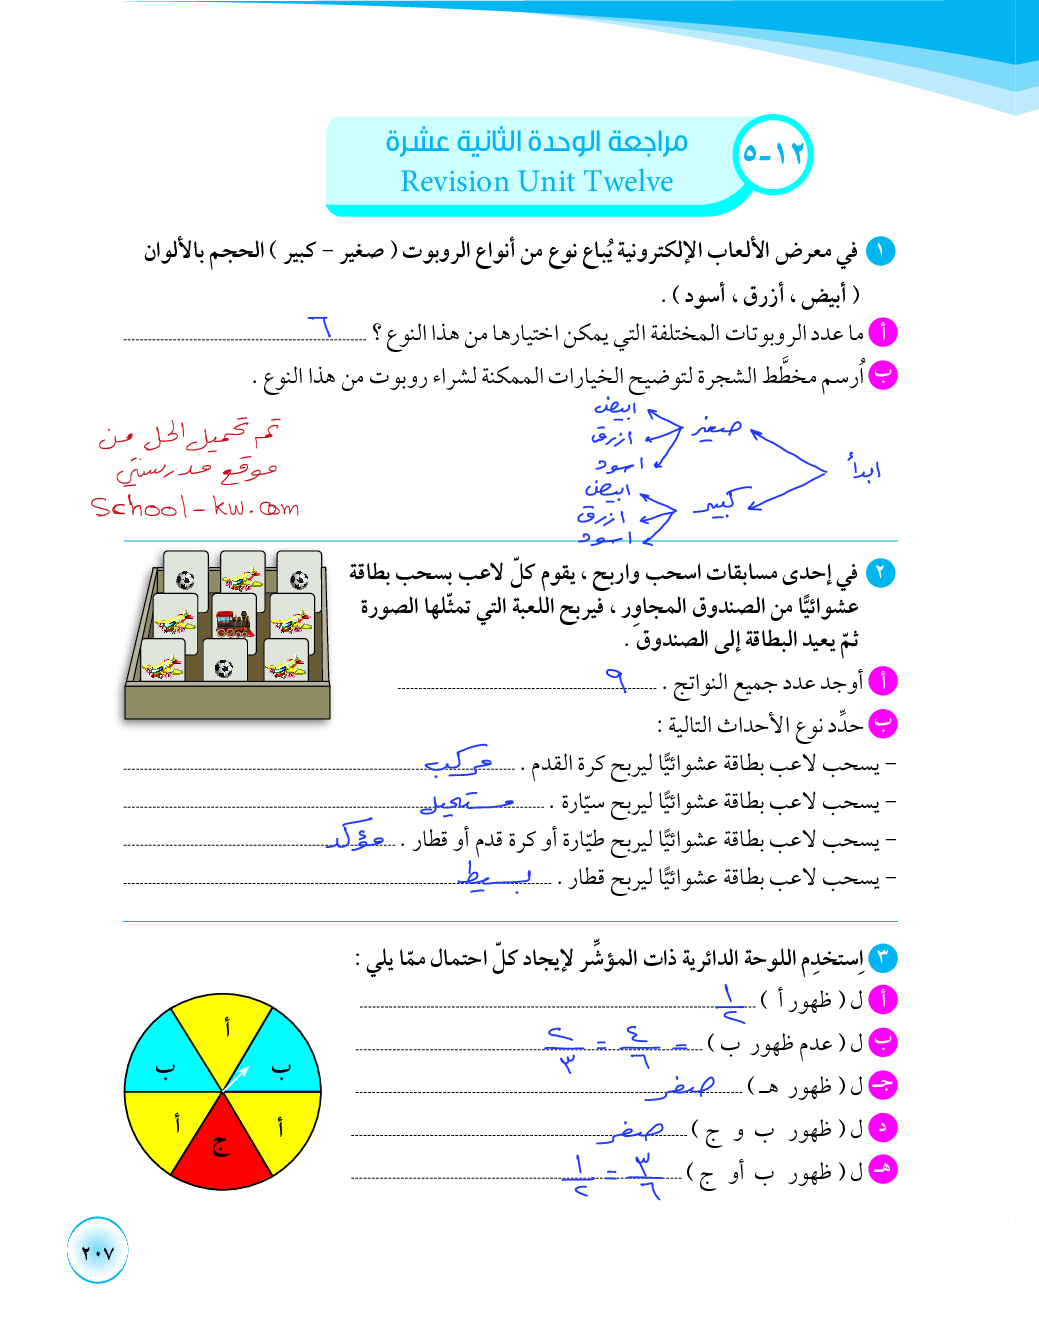 ١٢-٥
مراجعة الوحدة الثانية عشرة
Revision Unit Twelve
١ في معرض الألعاب الإلكترونية يُباع نوع من أنواع الروبوت ( صغير – كبير ) الحجم بالألوان
( أبيض ، أزرق ، أسود ) .
أ ما عدد الروبوتات المختلفة التي يمكن اختيارها من هذا النوع ؟ ٦
ب اُرسم مخطَّط الشجرة لتوضيح الخيارات الممكنة لشراء روبوت من هذا النوع .
ابدأ
صغير
ابيض
ازرق
اسود
كبير
ابيض
ازرق
اسود
تم تحميل الحل من
موقع مدرستي
School-kw.com
٢ في إحدى مسابقات اسحب واربح ، يقوم كلّ لاعب بسحب بطاقة
عشوائيًّا من الصندوق المجاوِر ، فيربح اللعبة التي تمثّلها الصورة
ثمّ يعيد البطاقة إلى الصندوق .
أ أوجد عدد جميع النواتج . ٩
ب حدِّد نوع الأحداث التالية :
– يسحب لاعب بطاقة عشوائيًّا ليربح كرة القدم . مركب
– يسحب لاعب بطاقة عشوائيًّا ليربح سيّارة . مستحيل
– يسحب لاعب بطاقة عشوائيًّا ليربح طيّارة أو كرة قدم أو قطار . مؤكد
– يسحب لاعب بطاقة عشوائيًّا ليربح قطار . بسيط
٣ اِستخدِم اللوحة الدائرية ذات المؤشِّر لإيجاد كلّ احتمال ممّا يلي :
أ ل ( ظهور أ ) ١/٢
ب ل ( عدم ظهور ب ) = ٤/٦ = ٢/٣
جـ ل ( ظهور هـ ) صفر
د ل ( ظهور ب و ج ) صفر
هـ ل ( ظهور ب أو ج ) ٣/٦ = ١/٢
أ
ب
ب
أ
أ
ج
٢٠٧